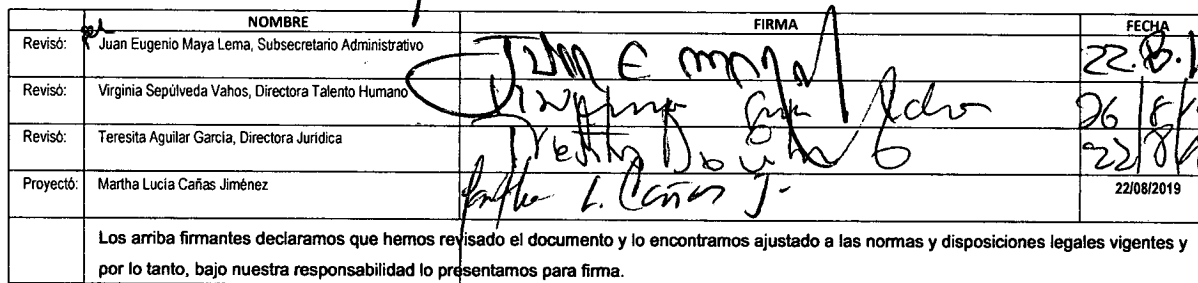 NOMBRE FIRMA FECHA
Revisó: Juan Eugenio Maya Lema, Subsecretario Administrativo Juan E Maya 22.8.
Revisó: Virginia Sepúlveda Vahos, Directora Talento Humano 26/8/
Revisó: Teresita Aguilar García, Directora Jurídica 22/8/
Proyectó: Martha Lucía Cañas Jiménez Martha L. Cañas J. 22/08/2019
Los arriba firmantes declaramos que hemos revisado el documento y lo encontramos ajustado a las normas y disposiciones legales vigentes y
por lo tanto, bajo nuestra responsabilidad lo presentamos para firma.